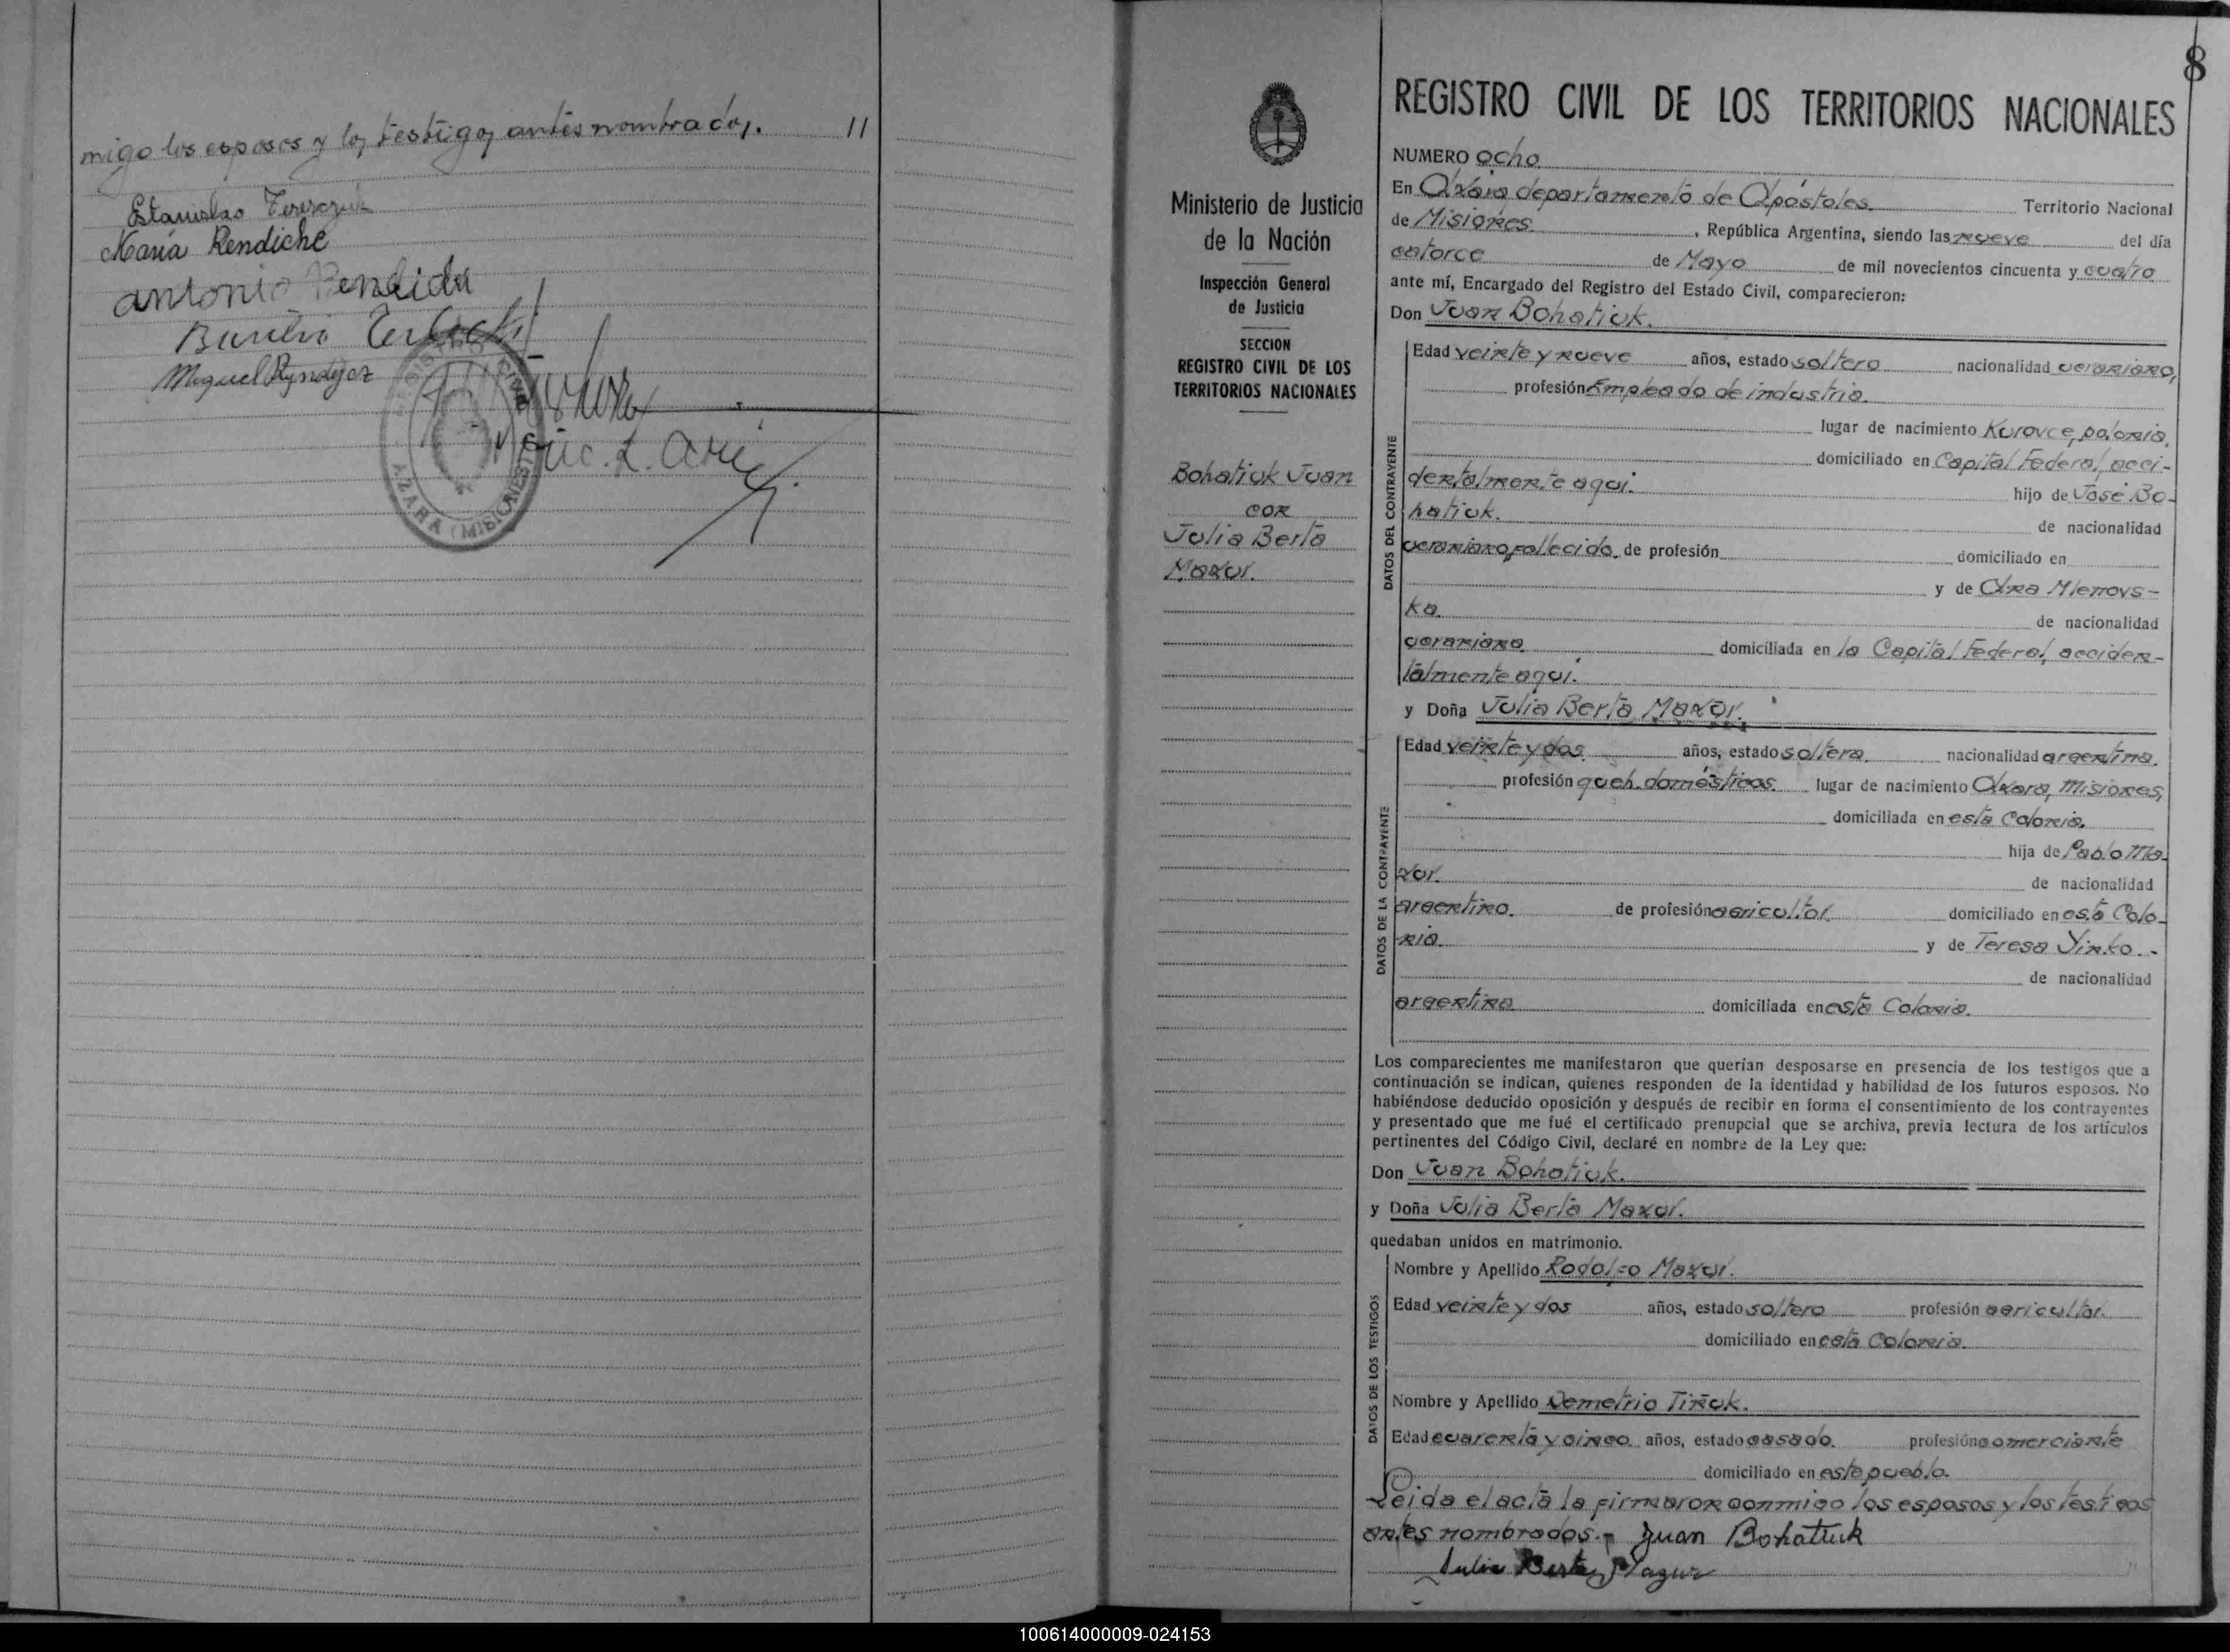 migo los esposos y los testigos antes nombrados. 11
Estanislao Tereszczuk
María Rendiche
antonio Rendida
Miguel Ryndycz
REGISTRO CIVIL
AZARA (MISIONES)
8
REGISTRO CIVIL DE LOS TERRITORIOS NACIONALES
Ministerio de Justicia
de la Nación
Inspección General
de Justicia
SECCION
REGISTRO CIVIL DE LOS
TERRITORIOS NACIONALES
Bohatiuk Juan
con
Julia Berta
Mazur.
NUMERO ocho
En Azara departamento de Apóstoles. Territorio Nacional
de Misiones. , República Argentina, siendo las nueve del día
catorce de Mayo de mil novecientos cincuenta y cuatro
ante mí, Encargado del Registro del Estado Civil, comparecieron:
Don Juan Bohatiuk.
DATOS DEL CONTRAYENTE
Edad veinte y nueve años, estado soltero nacionalidad ucraniano,
profesión Empleado de industria.
lugar de nacimiento Kurovce, polonia,
domiciliado en Capital Federal, acci-
dentalmente aqui. hijo de José Bo-
hatiuk. de nacionalidad
ucraniano, fallecido. de profesión domiciliado en
y de Ana Mlennovs-
ka. de nacionalidad
ucraniana domiciliada en la Capital Federal, acciden-
talmente aquí.
y Doña Julia Berta Mazur.
DATOS DE LA CONTRAYENTE
Edad veinte y dos. años, estado soltera. nacionalidad argentina.
profesión queh. domésticos. lugar de nacimiento Azara, Misiones,
domiciliada en esta Colonia.
hija de Pablo Ma-
zur. de nacionalidad
argentino. de profesión agricultor. domiciliado en esta Colo-
nia. y de Teresa Yinko.-
de nacionalidad
argentina domiciliada en esta Colonia.
Los comparecientes me manifestaron que querían desposarse en presencia de los testigos que a
continuación se indican, quienes responden de la identidad y habilidad de los futuros esposos. No
habiéndose deducido oposición y después de recibir en forma el consentimiento de los contrayentes
y presentado que me fué el certificado prenupcial que se archiva, previa lectura de los artículos
pertinentes del Código Civil, declaré en nombre de la Ley que:
Don Juan Bohatiuk.
y Doña Julia Berta Mazur.
quedaban unidos en matrimonio.
DATOS DE LOS TESTIGOS
Nombre y Apellido Rodolfo Mazur.
Edad veinte y dos años, estado soltero profesión agricultor.
domiciliado en esta Colonia.
Nombre y Apellido Demetrio Tiñuk.
Edad cuarenta y cinco años, estado casado. profesión comerciante
domiciliado en este pueblo.
Leida el acta la firmaron conmigo los esposos y los testigos
antes nombrados.- Juan Bohatiuk
Julia Berta Mazur
100614000009-024153